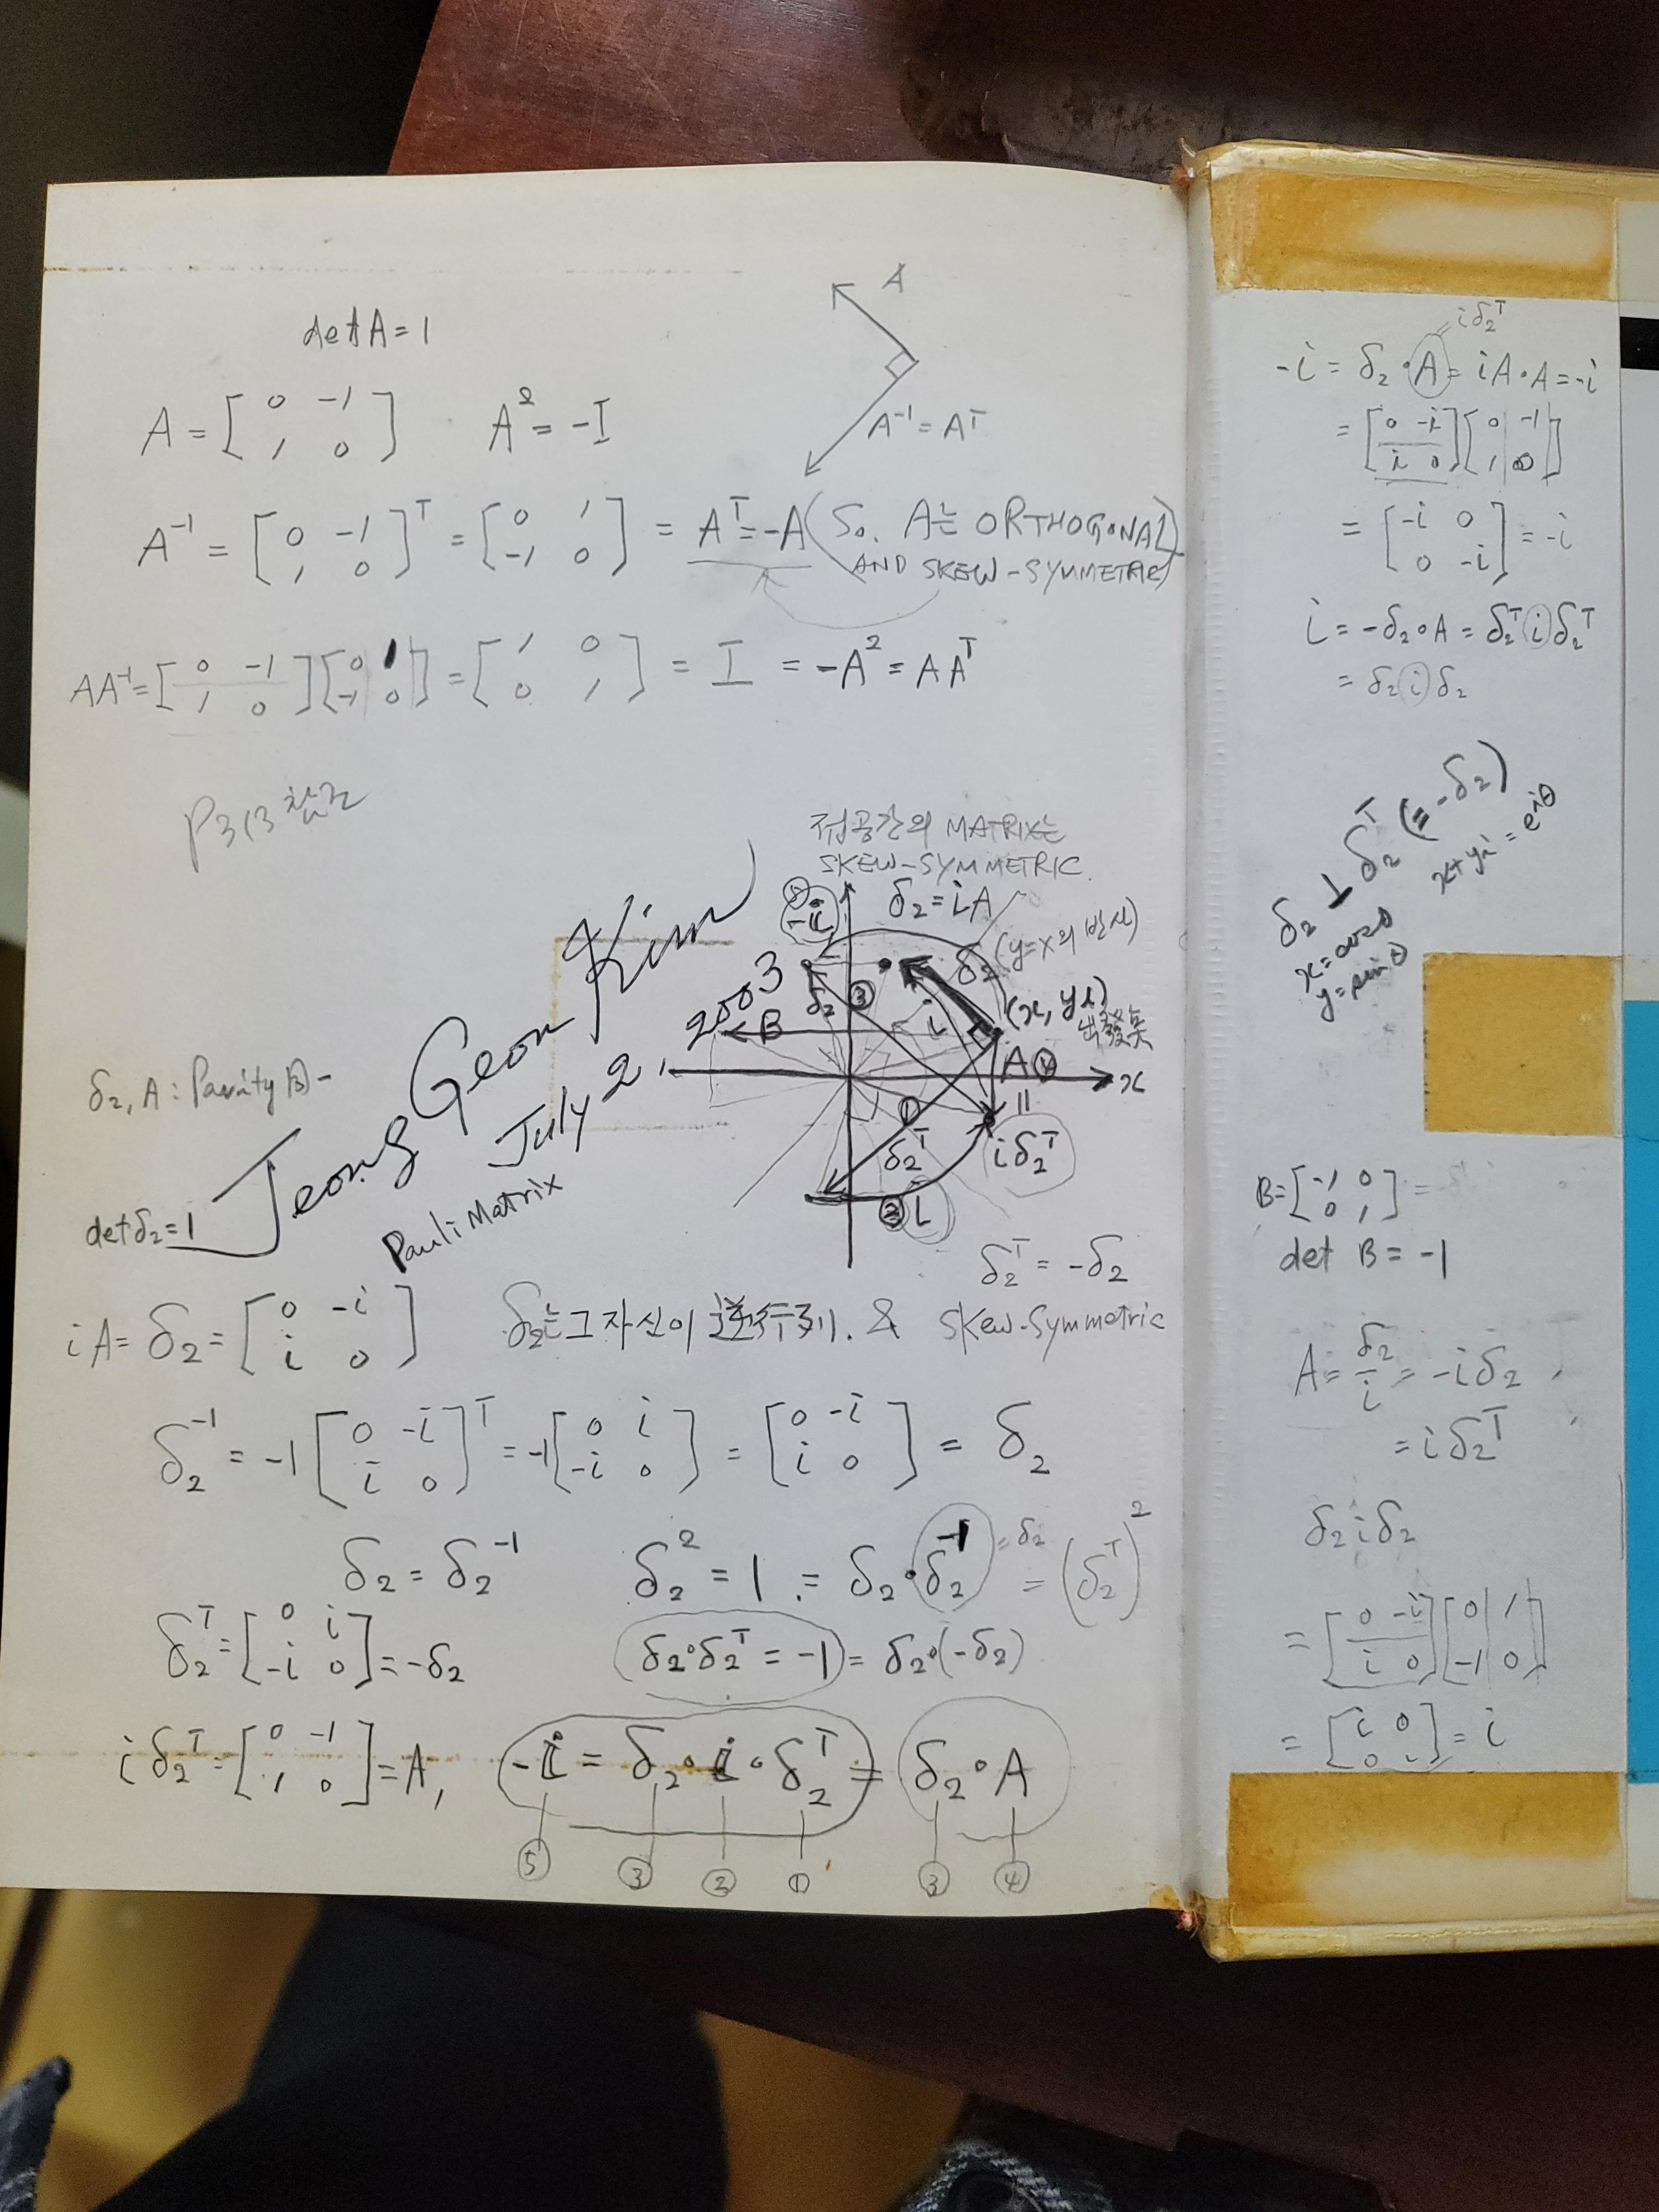 det A = 1
A
A = [ 0 -1 ; 1 0 ]  A² = -I
A⁻¹ = Aᵀ
A⁻¹ = [ 0 -1 ; 1 0 ]ᵀ = [ 0 1 ; -1 0 ] = Aᵀ = -A (So. A는 ORTHOGONAL
AND SKEW-SYMMETRIC)
AA⁻¹ = [ 0 -1 ; 1 0 ][ 0 1 ; -1 0 ] = [ 1 0 ; 0 1 ] = I = -A² = AAᵀ
P313 참조
접공간의 MATRIX는
SKEW-SYMMETRIC
⑤ -i
δ₂ = iA
(y=x의 반사)
δ₂
δ₂ ③
i
(x, yi)
出發点
B
A ④
x
①
δ₂ᵀ
||
iδ₂ᵀ
② i
Jeong Geon Kim
July 2, 2003
Pauli Matrix
δ₂, A : Parity
det δ₂ = 1
δ₂ᵀ = -δ₂
iA = δ₂ = [ 0 -i ; i 0 ]  δ₂는 그 자신이 逆行列. & Skew-Symmetric
δ₂⁻¹ = -1 [ 0 -i ; i 0 ]ᵀ = -1 [ 0 i ; -i 0 ] = [ 0 -i ; i 0 ] = δ₂
δ₂ = δ₂⁻¹  δ₂² = 1 = δ₂∘δ₂⁻¹ = δ₂ = (δ₂ᵀ)²
δ₂ᵀ = [ 0 i ; -i 0 ] = -δ₂  δ₂∘δ₂ᵀ = -1 = δ₂∘(-δ₂)
iδ₂ᵀ = [ 0 -1 ; 1 0 ] = A,  -i = δ₂∘i∘δ₂ᵀ = δ₂∘A
⑤ ③ ② ① ③ ④
= iδ₂ᵀ
-i = δ₂∘A = iA∘A = -i
= [ 0 -i ; i 0 ][ 0 -1 ; 1 0 ]
= [ -i 0 ; 0 -i ] = -i
i = -δ₂∘A = δ₂ᵀ i δ₂ᵀ
= δ₂ i δ₂
δ₂ ⊥ δ₂ᵀ (= -δ₂)
x + yi = e^{iθ}
x = cosθ
y = sinθ
B = [ -1 0 ; 0 1 ] =
det B = -1
A = δ₂/i = -iδ₂
= iδ₂ᵀ
δ₂ i δ₂
= [ 0 -i ; i 0 ][ 0 1 ; -1 0 ]
= [ i 0 ; 0 i ] = i